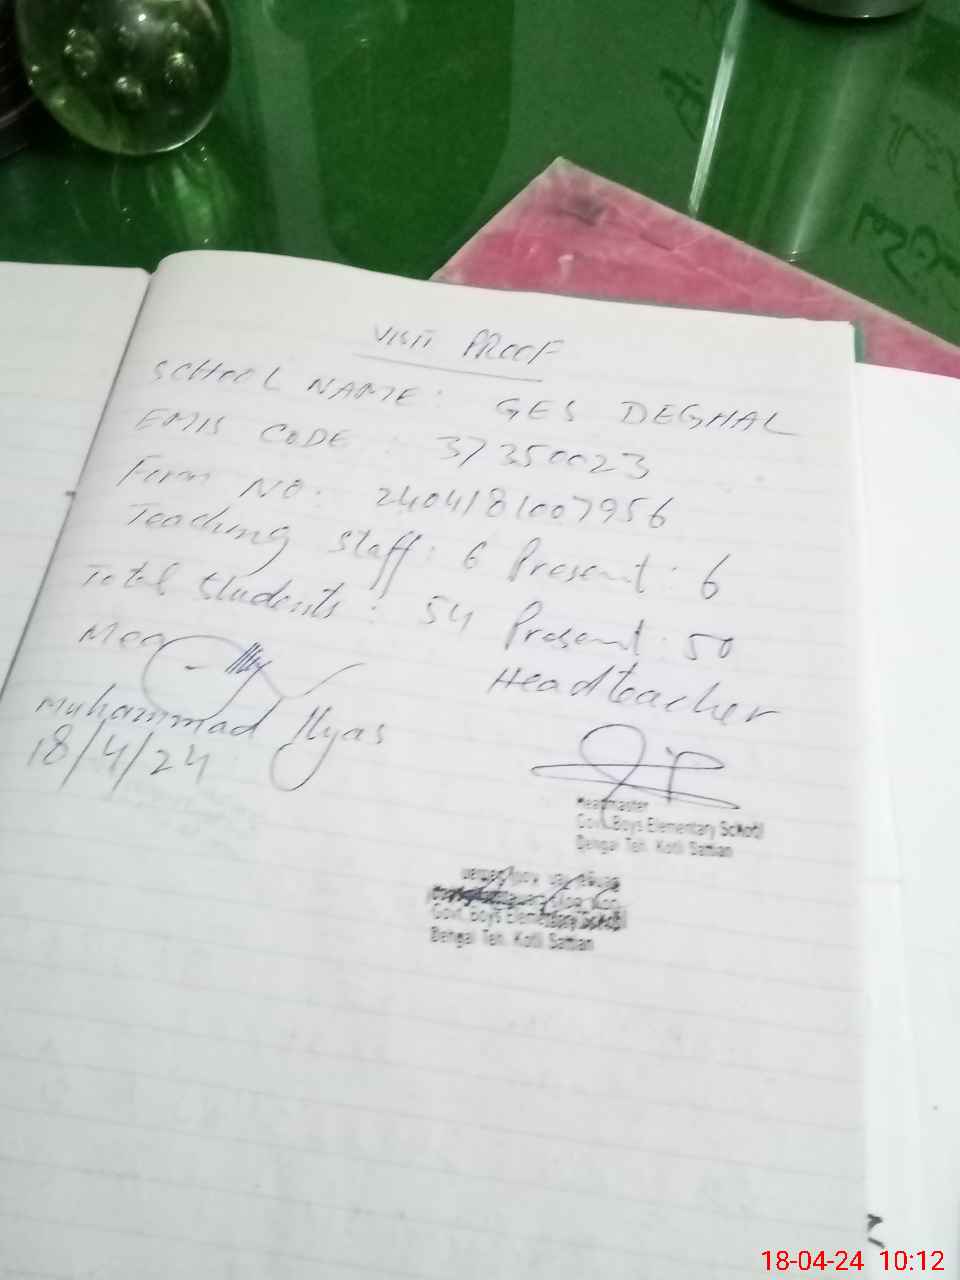 VISIT PROOF
SCHOOL NAME: GES DEGHAL
EMIS CODE: 37350023
Form NO: 2404181007956
Teaching Staff: 6 Present: 6
Total Students: 54 Present: 50
Mea
Headteacher
Muhammad Ilyas
18/4/24
Headmaster
Govt. Boys Elementary School
Dengal Teh. Kotli Sattian
Govt. Boys Elementary School
Dengal Teh. Kotli Sattian
18-04-24 10:12